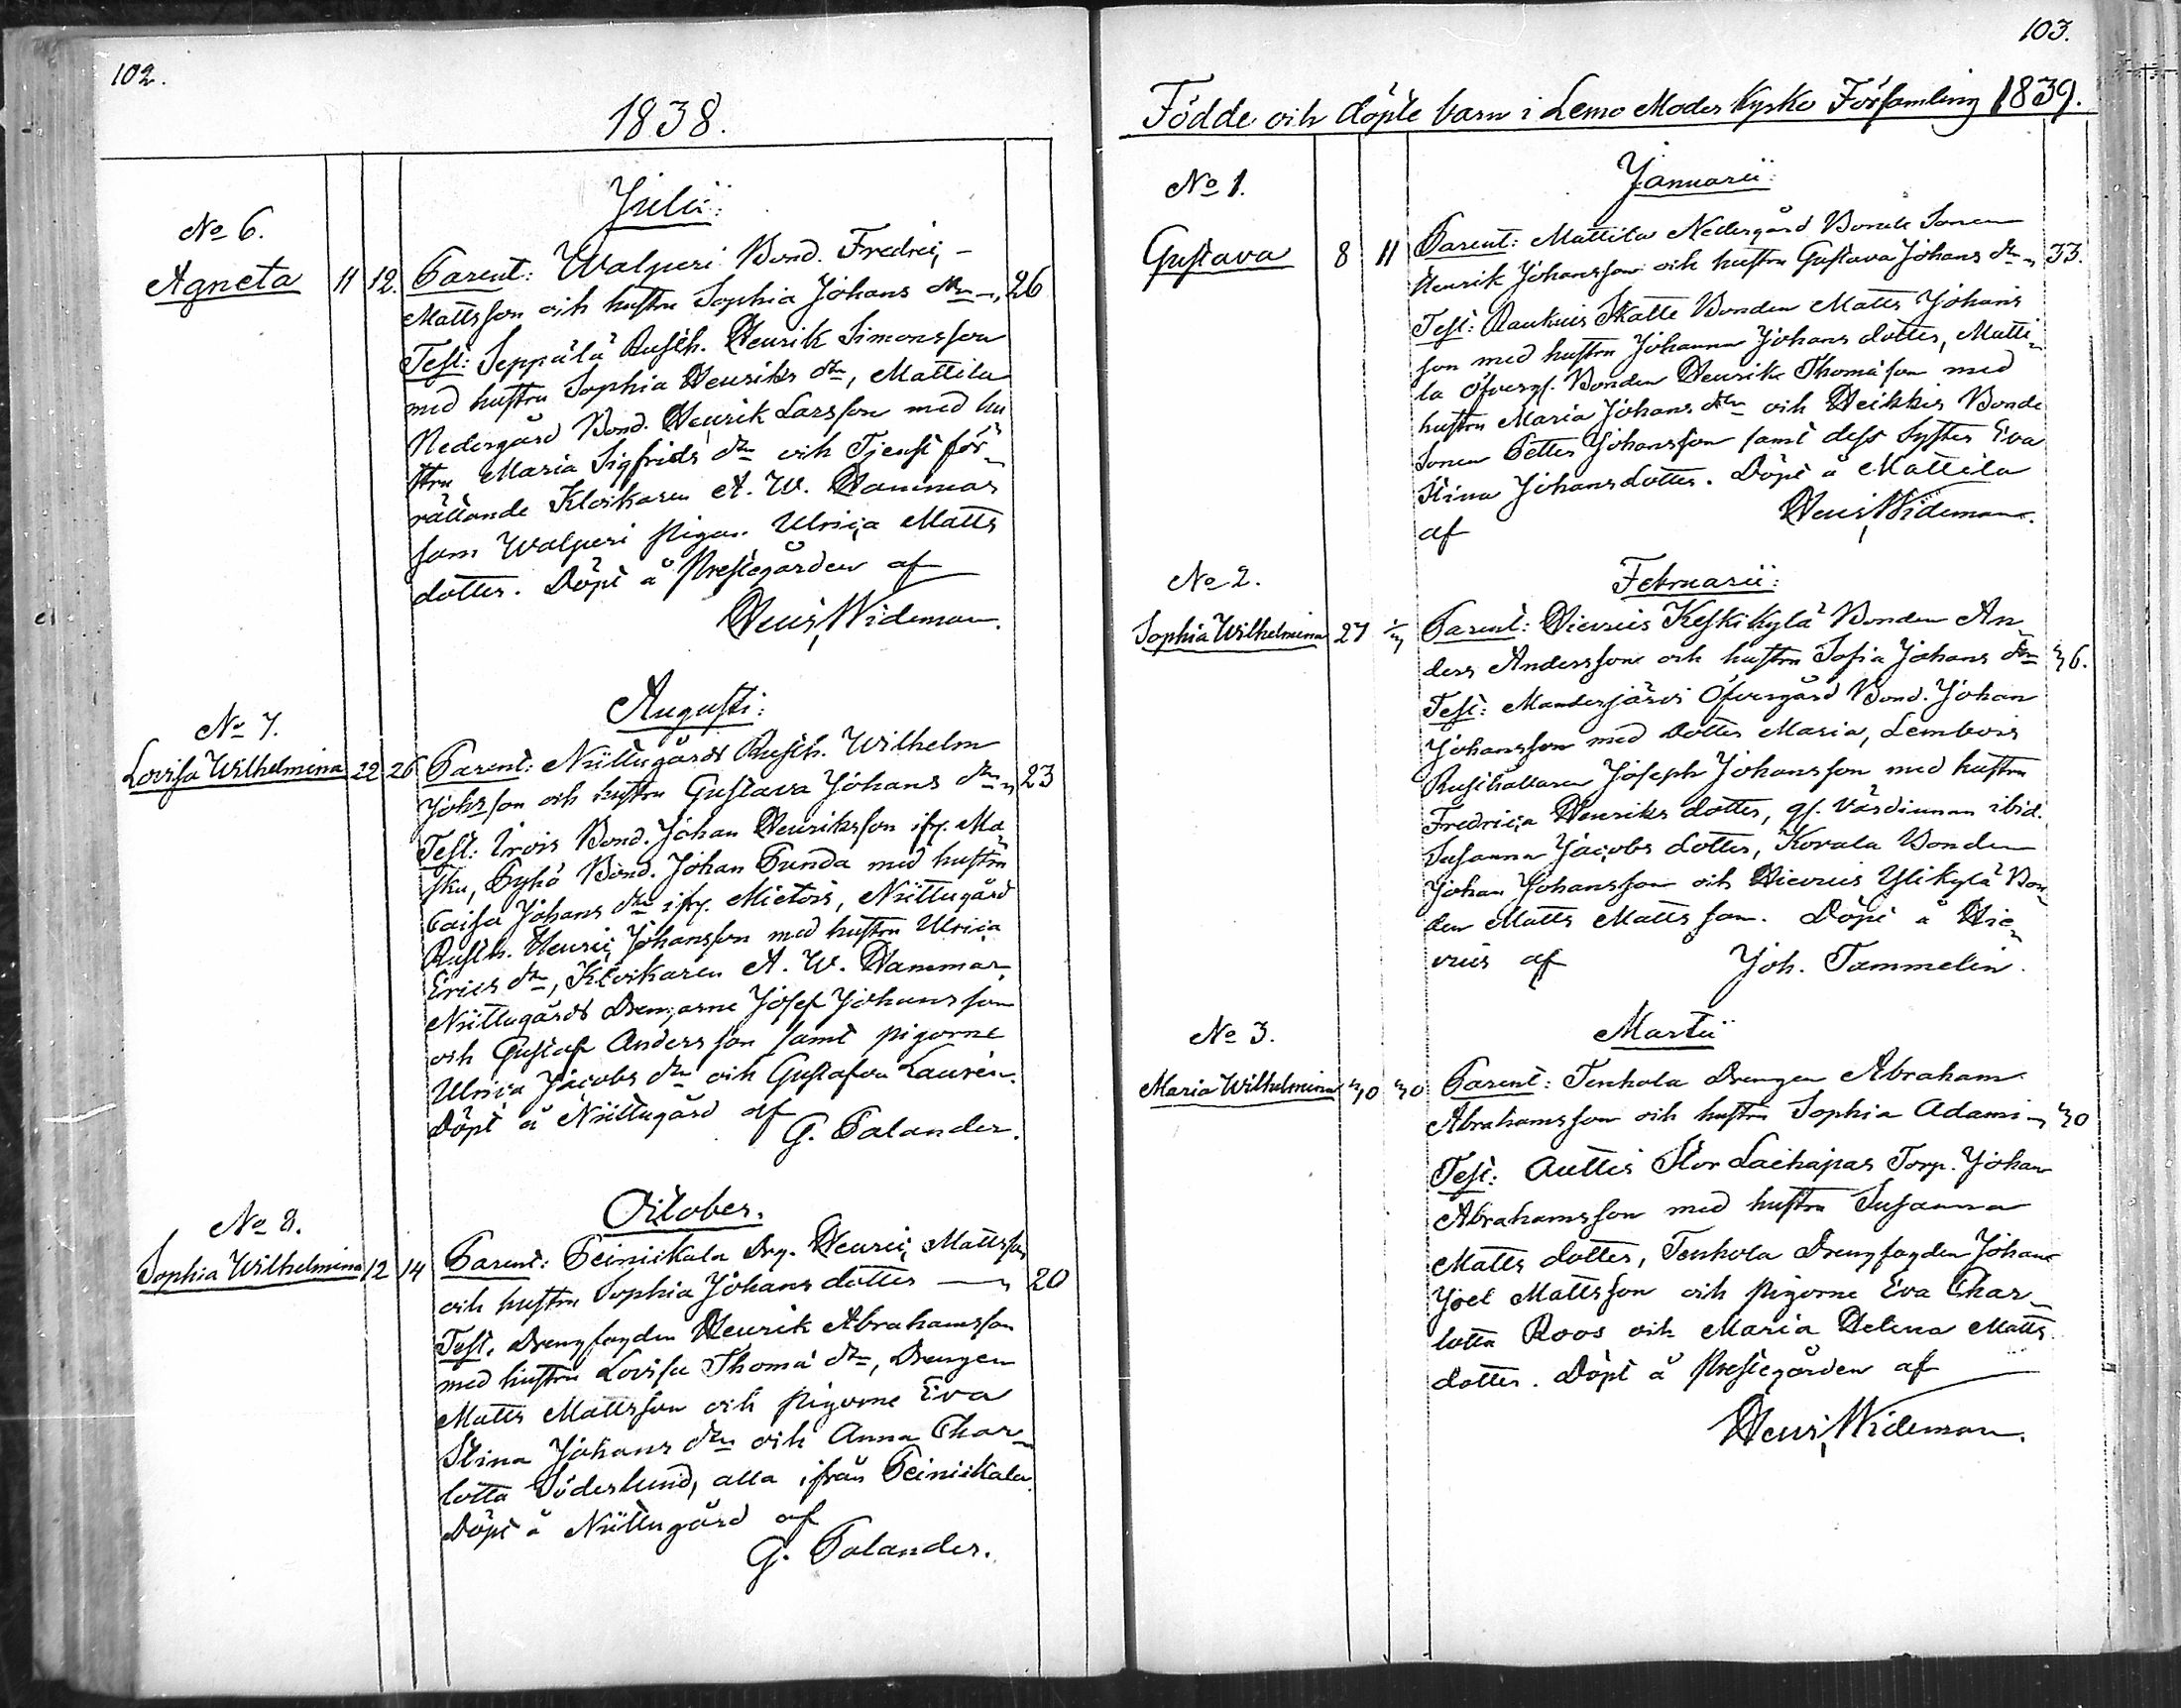 102.
1838.
Julii:
No 6.
Agneta 11 12. Parent: Walperi Bond. Fredric,
Mattsson och hustru Sophia Johans dtr 26
Test: Seppälä Rusth. Henrik Simonsson
med hustru Sophia Henriks dtr, Mattila
Nedergård Bond. Henrik Larsson med hu
stru Maria Sigfrids dtr och Tjenst för
rättande Klockaren A. W. Hammar
sam Walperi pigan Ulrica Matts
dotter. Döpt å Prestegården af
Henr, Wideman.
Augusti:
No 7.
Lovisa Wilhelmina 22 26 Parent: Niittugårds Rusth. Wilhelm
Johsson och hustru Gustava Johans dtr 23
Test: Irois Bond. Johan Henriksson ifr. Ma
sku, Pyhö Bond. Johan Punda med hustru
Caisa Johans dtr ifr. Mietois, Niittugård
Rusth. Henric, Johansson med hustru Ulrica
Erics dtr, Klockaren A. W. Hammar
Niittugårds Drengarne Josef Johansson
och Gustaf Andersson samt pigorne
Ulrica Jacobs dtr och Gustafva Laurén.
Döpt å Niittugård af
G. Palander.
October.
No 8.
Sophia Wilhelmina 12 14 Parent: Peinikkala Drg. Henric, Mattsson
och hustru Sophia Johans dotter 20
Test. Drengfogden Henrik Abrahamsson
med hustru Lovisa Thoma dtr, Drengen
Matts Mattsson och pigorne Eva
Stina Johans dtr och Anna Char
lotta Söderlund, alla ifrån Peinikkala
Döpt å Niittugård af
G. Palander.
103.
Födde och döpte barn i Lemo Moder Kyrko Församling 1839.
Januarii:
No 1.
Gustava 8 11 Parent: Mattila Nedergård Bonde Sonen
Henrik Johansson och hustru Gustava Johans dtr 33.
Test: Raukuis Skatte Bonden Matts Johans
son med hustru Johanna Johans dotter, Matti
la öfverg. Bonden Henrik Thomason med
hustru Maria Johans dtr och Heikkis Bonde
Sonen Petter Johansson samt dess Syster Eva
Stina Johansdotter. Döpt å Mattila
af Henr, Wideman.
Februarii:
No 2.
Sophia Wilhelmina 27 1/3 Parent: Hierois Keskikylä Bonden An
ders Andersson och hustru Sofia Johans dtr 36.
Test: Manderjärvi Öfvergård Bond. Johan
Johansson med dotter Maria, Lembois
Rusthållaren Joseph Johansson med hustru
Fredrica Henriks dotter, gf. Värdinnan ibid.
Susanna Jacobs dotter, Korala Bonden
Johan Johansson och Hierois Ylikylä Bon
den Matts Mattsson. Döpt å Hie
rois af Joh. Tammelin.
Martii
No 3.
Maria Wilhelmina 30 30 Parent: Tenhola Drengen Abraham
Abrahamsson och hustru Sophia Adami 30
Test: Auttis Stor Laihapas Torp. Johan
Abrahamsson med hustru Susanna
Matts dotter, Tenhola Drengfogden Johan
Joel Mattsson och pigorne Eva Char
lotta Roos och Maria Helena Matts
dotter. Döpt å Prestegården af
Henr, Wideman.